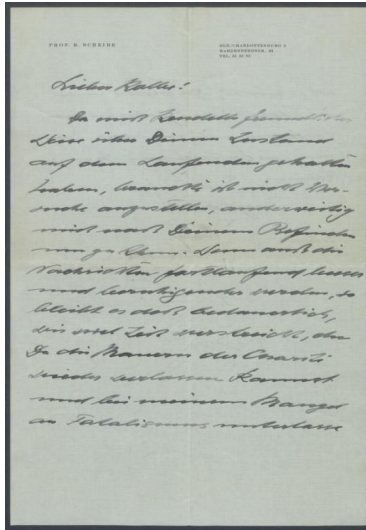 PROF. R. SCHEIBE
BLN.-CHARLOTTENBURG 2
HARDENBERGSTR. 33
Lieber Kolbe!
Da mich Rendelts freundlicher
Weise über Deinen Zustand
auf dem Laufenden gehalten
haben, brauchte ich nicht Ver-
suche anzustellen, anderweitig
mich nach Deinem Befinden
um zu tun. Wenn auch die
Nachrichten fortlaufend besser
und beruhigender werden, so
bleibt es doch bedauerlich,
wie viel Zeit verstreicht, ehe
Du die Mauern der Charité
wieder verlassen kannst
und bei meinem Mangel
an Fatalismus unterlasse